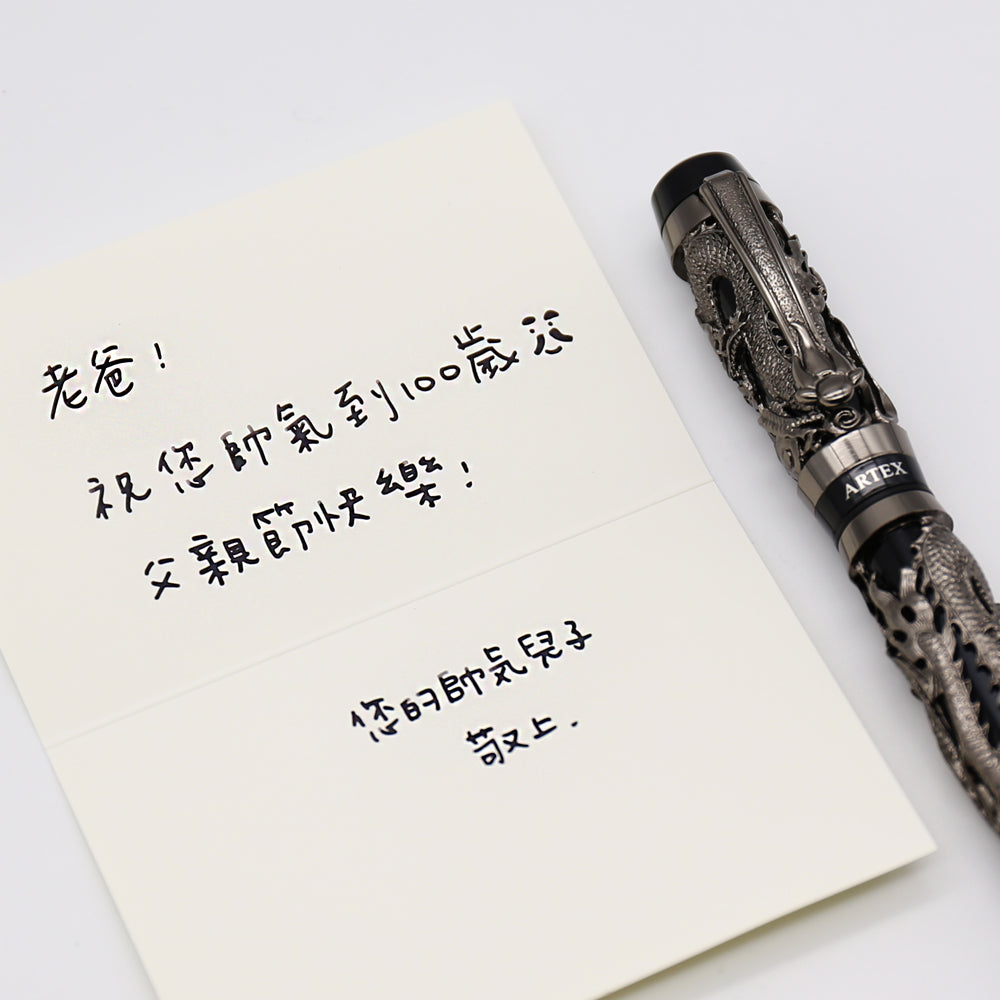 老爸!
祝您帥氣到100歲
父親節快樂!
您的帥気兒子
敬上.
ARTEX